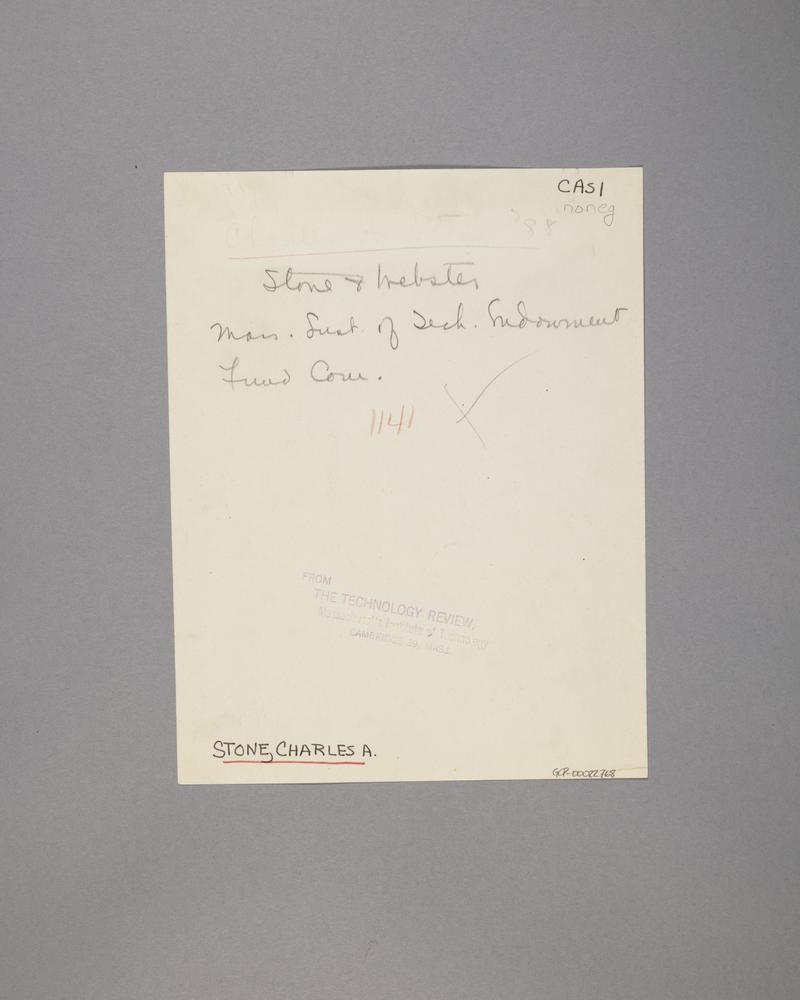 CAS1
noneg
'88
Stone & Webster
Mass. Inst. of Tech. Endowment
Fund Com.
1141
FROM
THE TECHNOLOGY REVIEW,
Massachusetts Institute of Technology
CAMBRIDGE 39, MASS.
STONE, CHARLES A.
GCP-00022768